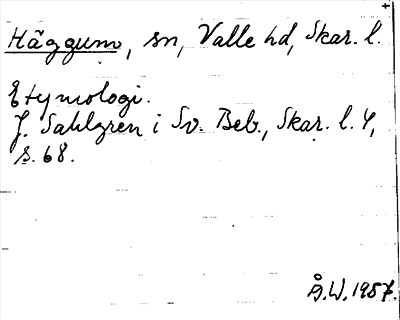 Häggum, sn, Valle hd, Skar. l.
Etymologi.
J. Sahlgren i Sv. Beb., Skar. l. 4,
s. 68.
Å.W. 1957.